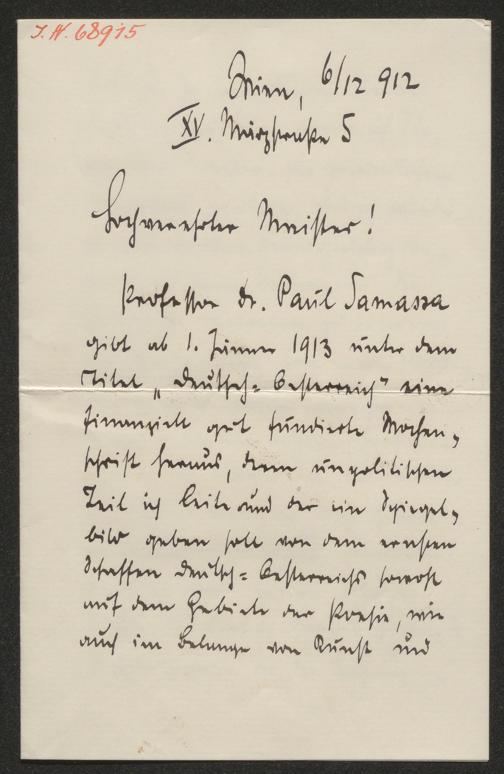 I. N. 68915
Wien, 6/12 912
XV. Märzstraße 5
Hochverehrter Meister!
Professor Dr. Paul Samassa
gibt ab 1. Jänner 1913 unter dem
Titel „Deutsch=Oesterreich" eine
finanziell gut fundierte Wochen-
schrift heraus, deren unpolitischen
Teil ich leite und der ein Spiegel-
bild geben soll von dem ernsten
Schaffen Deutsch=Oesterreichs sowohl
auf dem Gebiete der Poesie, wie
auch im Belange von Kunst und